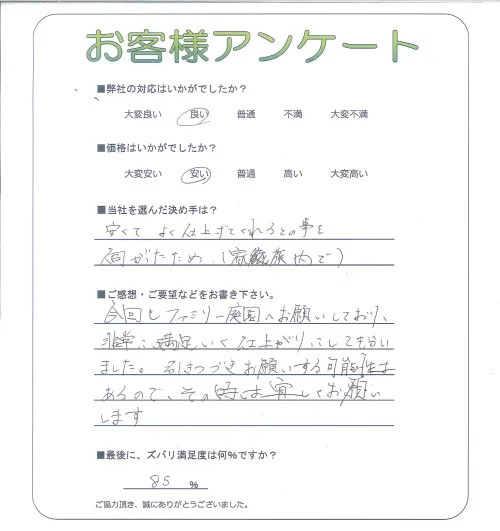 お客様アンケート
■弊社の対応はいかがでしたか？
大変良い 良い 普通 不満 大変不満
■価格はいかがでしたか？
大変安い 安い 普通 高い 大変高い
■当社を選んだ決め手は？
安くて よく仕上げてくれるとの事を
伺がたため。（家族内で）
■ご感想・ご要望などをお書き下さい。
今回もファミリー庭園へお願いしており、
非常に満足いく仕上がりにしてもらい
ました。引きつづきお願いする可能性は
あるので、その時は宜しくお願い
します
■最後に、ズバリ満足度は何％ですか？
85 %
ご協力頂き、誠にありがとうございました。